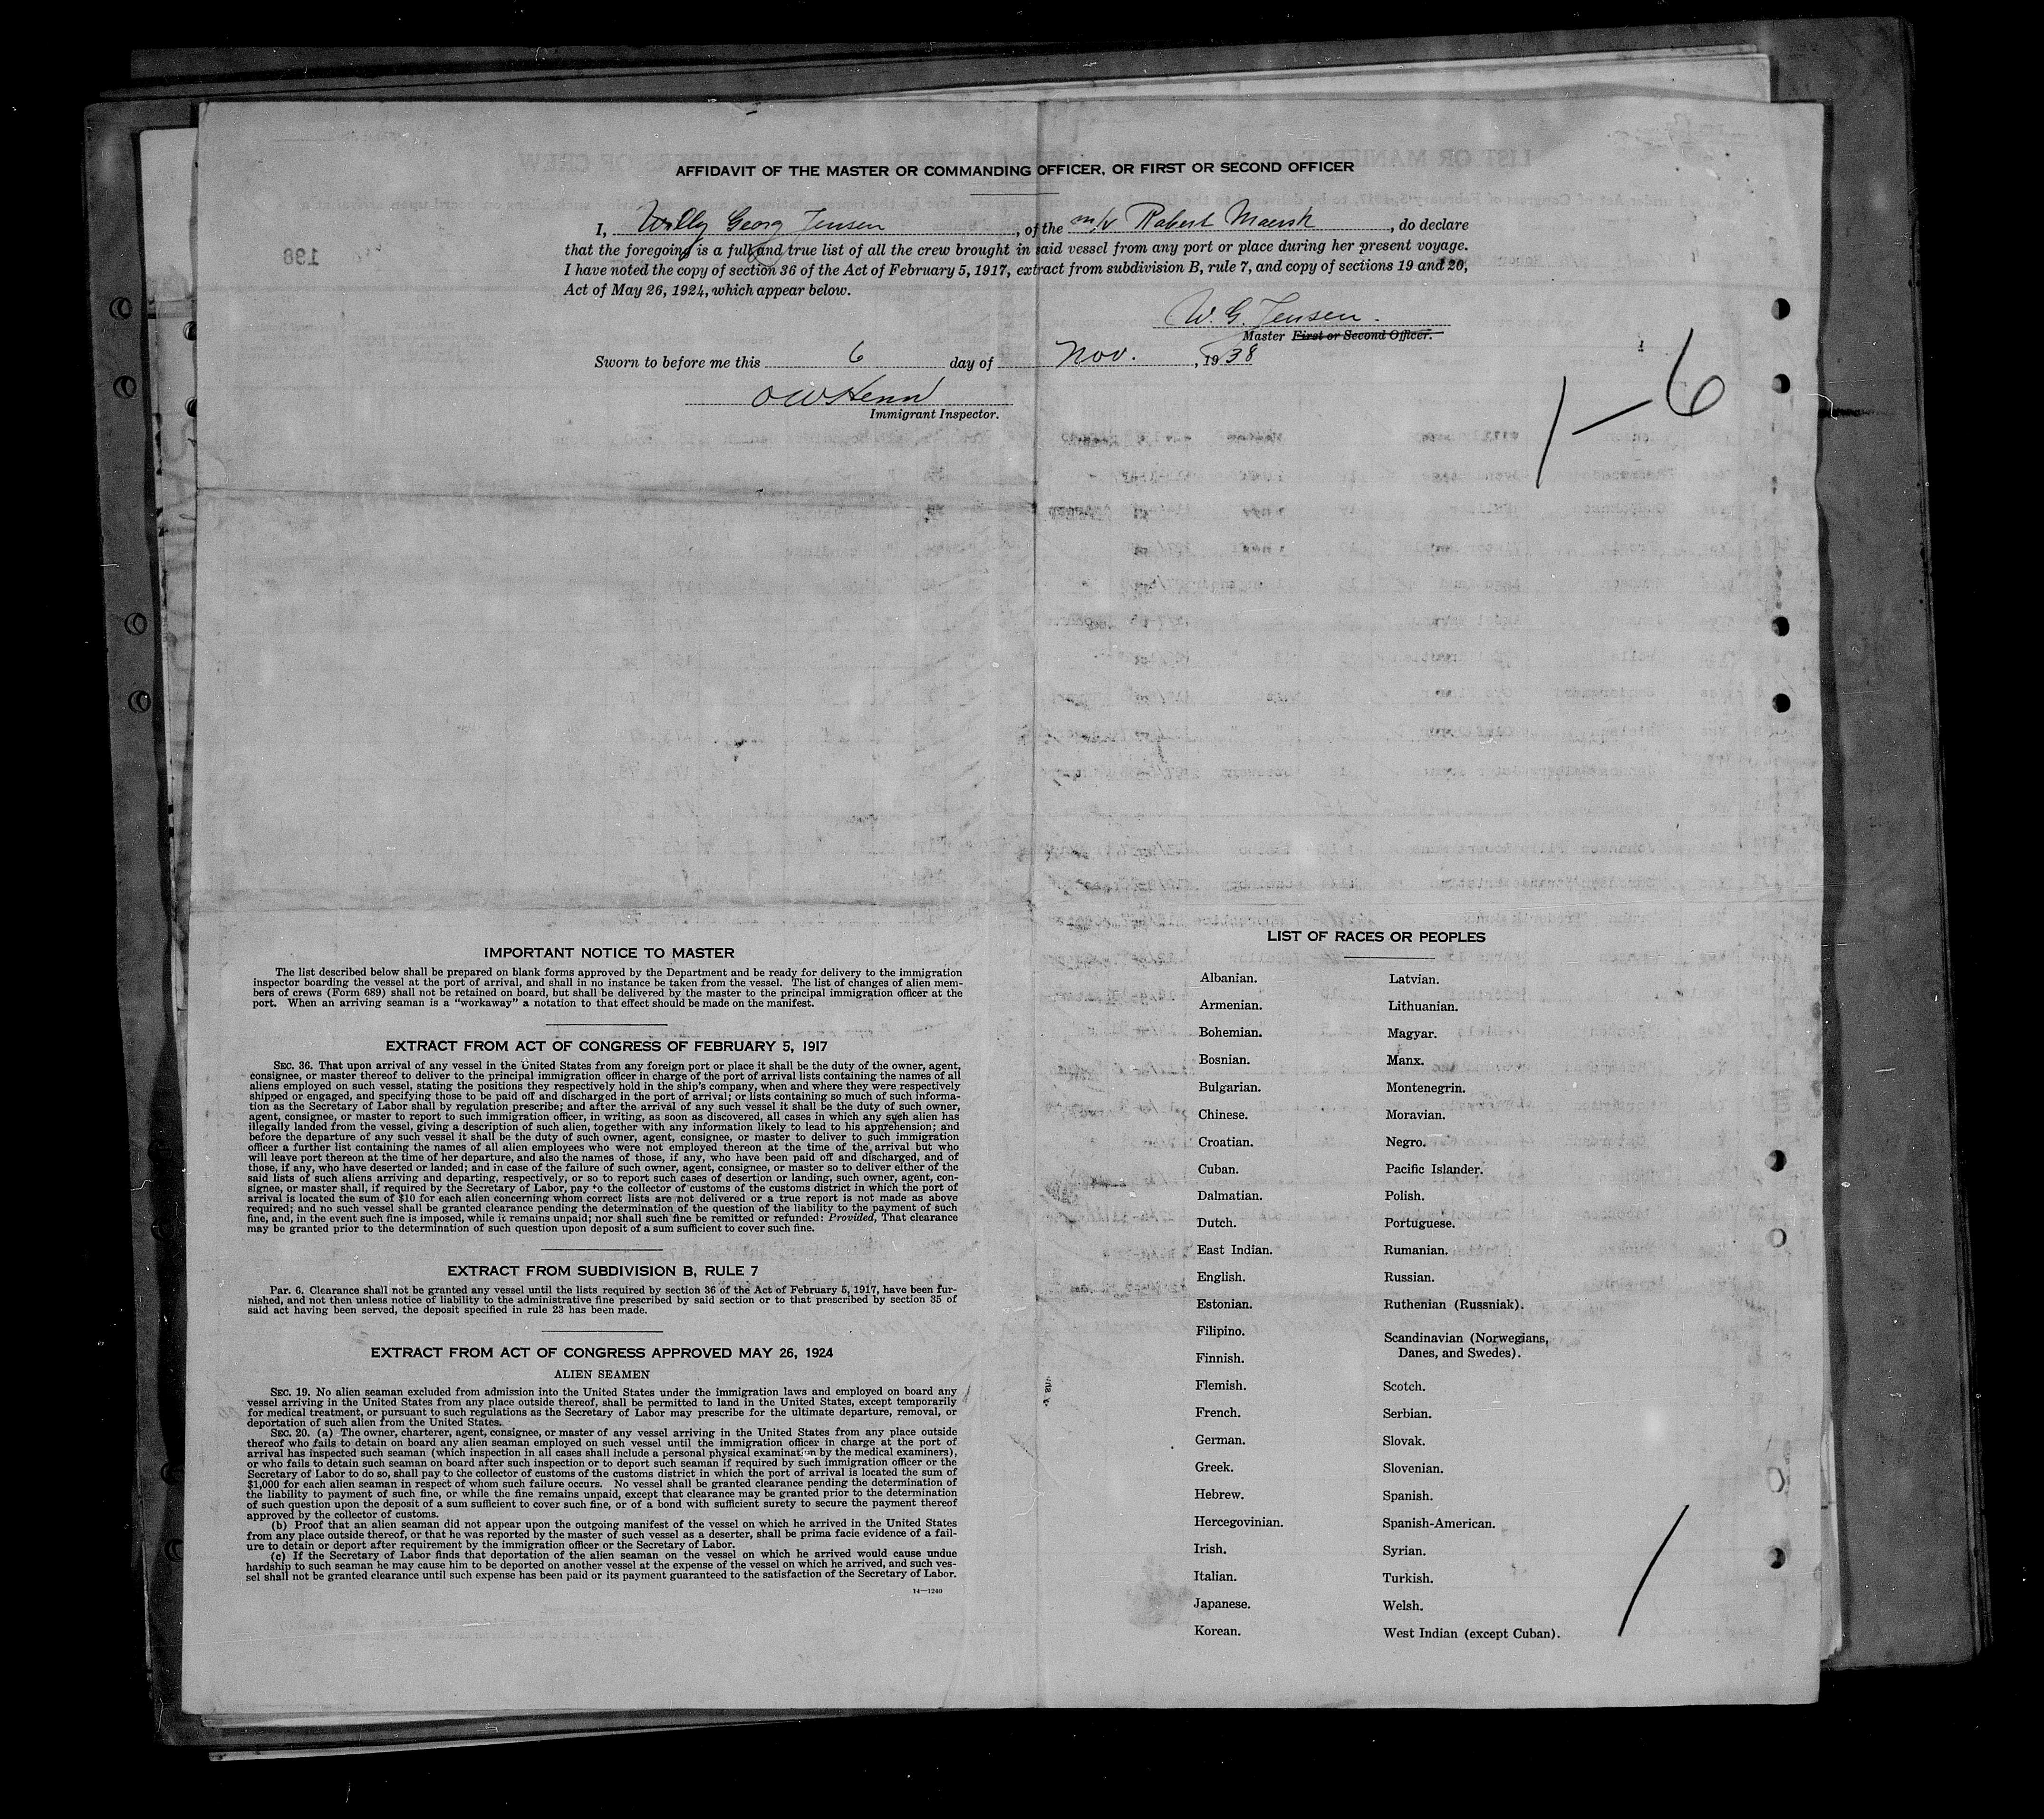 AFFIDAVIT OF THE MASTER OR COMMANDING OFFICER, OR FIRST OR SECOND OFFICER
I, Willy Georg Jensen, of the m/v Robert Maersk, do declare
that the foregoing is a full and true list of all the crew brought in said vessel from any port or place during her present voyage.
I have noted the copy of section 36 of the Act of February 5, 1917, extract from subdivision B, rule 7, and copy of sections 19 and 20,
Act of May 26, 1924, which appear below.
W. G. Jensen.
Master First or Second Officer.
Sworn to before me this 6 day of Nov., 1938
Immigrant Inspector.
1-6
IMPORTANT NOTICE TO MASTER
The list described below shall be prepared on blank forms approved by the Department and be ready for delivery to the immigration
inspector boarding the vessel at the port of arrival, and shall in no instance be taken from the vessel. The list of changes of alien mem-
bers of crews (Form 689) shall not be retained on board, but shall be delivered by the master to the principal immigration officer at the
port. When an arriving seaman is a "workaway" a notation to that effect should be made on the manifest.
EXTRACT FROM ACT OF CONGRESS OF FEBRUARY 5, 1917
SEC. 36. That upon arrival of any vessel in the United States from any foreign port or place it shall be the duty of the owner, agent,
consignee, or master thereof to deliver to the principal immigration officer in charge of the port of arrival lists containing the names of all
aliens employed on such vessel, stating the positions they respectively hold in the ship's company, when and where they were respectively
shipped or engaged, and specifying those to be paid off and discharged in the port of arrival; or lists containing so much of such informa-
tion as the Secretary of Labor shall by regulation prescribe; and after the arrival of any such vessel it shall be the duty of such owner,
agent, consignee, or master to report to such immigration officer, in writing, as soon as discovered, all cases in which any such alien has
illegally landed from the vessel, giving a description of such alien, together with any information likely to lead to his apprehension; and
before the departure of any such vessel it shall be the duty of such owner, agent, consignee, or master to deliver to such immigration
officer a further list containing the names of all alien employees who were not employed thereon at the time of the arrival but who
will leave port thereon at the time of her departure, and also the names of those, if any, who have been paid off and discharged, and of
those, if any, who have deserted or landed; and in case of the failure of such owner, agent, consignee, or master so to deliver either of the
said lists of such aliens arriving and departing, respectively, or so to report such cases of desertion or landing, such owner, agent, con-
signee, or master shall, if required by the Secretary of Labor, pay to the collector of customs of the customs district in which the port of
arrival is located the sum of $10 for each alien concerning whom correct lists are not delivered or a true report is not made as above
required; and no such vessel shall be granted clearance pending the determination of the question of the liability to the payment of such
fine, and, in the event such fine is imposed, while it remains unpaid; nor shall such fine be remitted or refunded: Provided, That clearance
may be granted prior to the determination of such question upon deposit of a sum sufficient to cover such fine.
EXTRACT FROM SUBDIVISION B, RULE 7
Par. 6. Clearance shall not be granted any vessel until the lists required by section 36 of the Act of February 5, 1917, have been fur-
nished, and not then unless notice of liability to the administrative fine prescribed by said section or to that prescribed by section 35 of
said act having been served, the deposit specified in rule 23 has been made.
EXTRACT FROM ACT OF CONGRESS APPROVED MAY 26, 1924
ALIEN SEAMEN
SEC. 19. No alien seaman excluded from admission into the United States under the immigration laws and employed on board any
vessel arriving in the United States from any place outside thereof, shall be permitted to land in the United States, except temporarily
for medical treatment, or pursuant to such regulations as the Secretary of Labor may prescribe for the ultimate departure, removal, or
deportation of such alien from the United States.
SEC. 20. (a) The owner, charterer, agent, consignee, or master of any vessel arriving in the United States from any place outside
thereof who fails to detain on board any alien seaman employed on such vessel until the immigration officer in charge at the port of
arrival has inspected such seaman (which inspection in all cases shall include a personal physical examination by the medical examiners),
or who fails to detain such seaman on board after such inspection or to deport such seaman if required by such immigration officer or the
Secretary of Labor to do so, shall pay to the collector of customs of the customs district in which the port of arrival is located the sum of
$1,000 for each alien seaman in respect of whom such failure occurs. No vessel shall be granted clearance pending the determination of
the liability to payment of such fine, or while the fine remains unpaid, except that clearance may be granted prior to the determination
of such question upon the deposit of a sum sufficient to cover such fine, or of a bond with sufficient surety to secure the payment thereof
approved by the collector of customs.
(b) Proof that an alien seaman did not appear upon the outgoing manifest of the vessel on which he arrived in the United States
from any place outside thereof, or that he was reported by the master of such vessel as a deserter, shall be prima facie evidence of a fail-
ure to detain or deport after requirement by the immigration officer or the Secretary of Labor.
(c) If the Secretary of Labor finds that deportation of the alien seaman on the vessel on which he arrived would cause undue
hardship to such seaman he may cause him to be deported on another vessel at the expense of the vessel on which he arrived, and such ves-
sel shall not be granted clearance until such expense has been paid or its payment guaranteed to the satisfaction of the Secretary of Labor.
14—1240
LIST OF RACES OR PEOPLES
Albanian.
Armenian.
Bohemian.
Bosnian.
Bulgarian.
Chinese.
Croatian.
Cuban.
Dalmatian.
Dutch.
East Indian.
English.
Estonian.
Filipino.
Finnish.
Flemish.
French.
German.
Greek.
Hebrew.
Hercegovinian.
Irish.
Italian.
Japanese.
Korean.
Latvian.
Lithuanian.
Magyar.
Manx.
Montenegrin.
Moravian.
Negro.
Pacific Islander.
Polish.
Portuguese.
Rumanian.
Russian.
Ruthenian (Russniak).
Scandinavian (Norwegians,
Danes, and Swedes).
Scotch.
Serbian.
Slovak.
Slovenian.
Spanish.
Spanish-American.
Syrian.
Turkish.
Welsh.
West Indian (except Cuban).